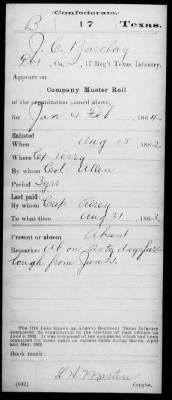 Confederate.
B 17 Texas.
J. C. Barclay
Co. D, 17 Reg't Texas Infantry.
Appears on
Company Muster Roll
of the organization named above,
for Jan & Feb, 1864.
Enlisted:
When Aug 15, 1862
Where
By whom Col. Allen
Period 3 yrs
Last paid:
By whom Cap
To what time Aug 31, 1863.
Present or absent Absent
Remarks: Ab on sixty day fur
lough from Jan
The 17th (also known as Allen's) Regiment Texas Infantry
Book mark:
(642) Copyist.